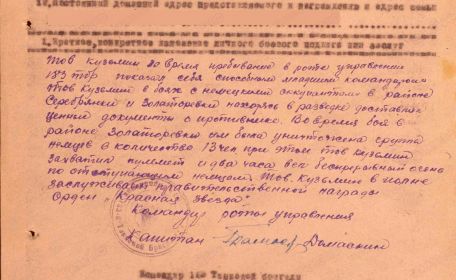 IV, постоянный домашний адрес представляемого к награждению и адрес семьи
I, Краткое, конкретное изложение личного боевого подвига или заслуг
Тов Кузьмин во время пребывания в роте управления
183 тбр показал себя способным младшим командиром
Тов Кузьмин в боях с немецкими оккупантами в районе
Серебрянки и Золаторевки находясь в разведке доставлял
ценные документы о противнике. Во время боя в
районе Золаторевки им была уничтожена группа
немцев в количестве 13 чел при этом Тов Кузьмин
захватил пулемет и два часа вел беспрерывный огонь
по отступающим немцам Тов. Кузьмин в полне
заслуживает правительственной награды
Орден "Красная звезда"
Командир роты управления
Капитан Домаскин
Командир Танковой бригады